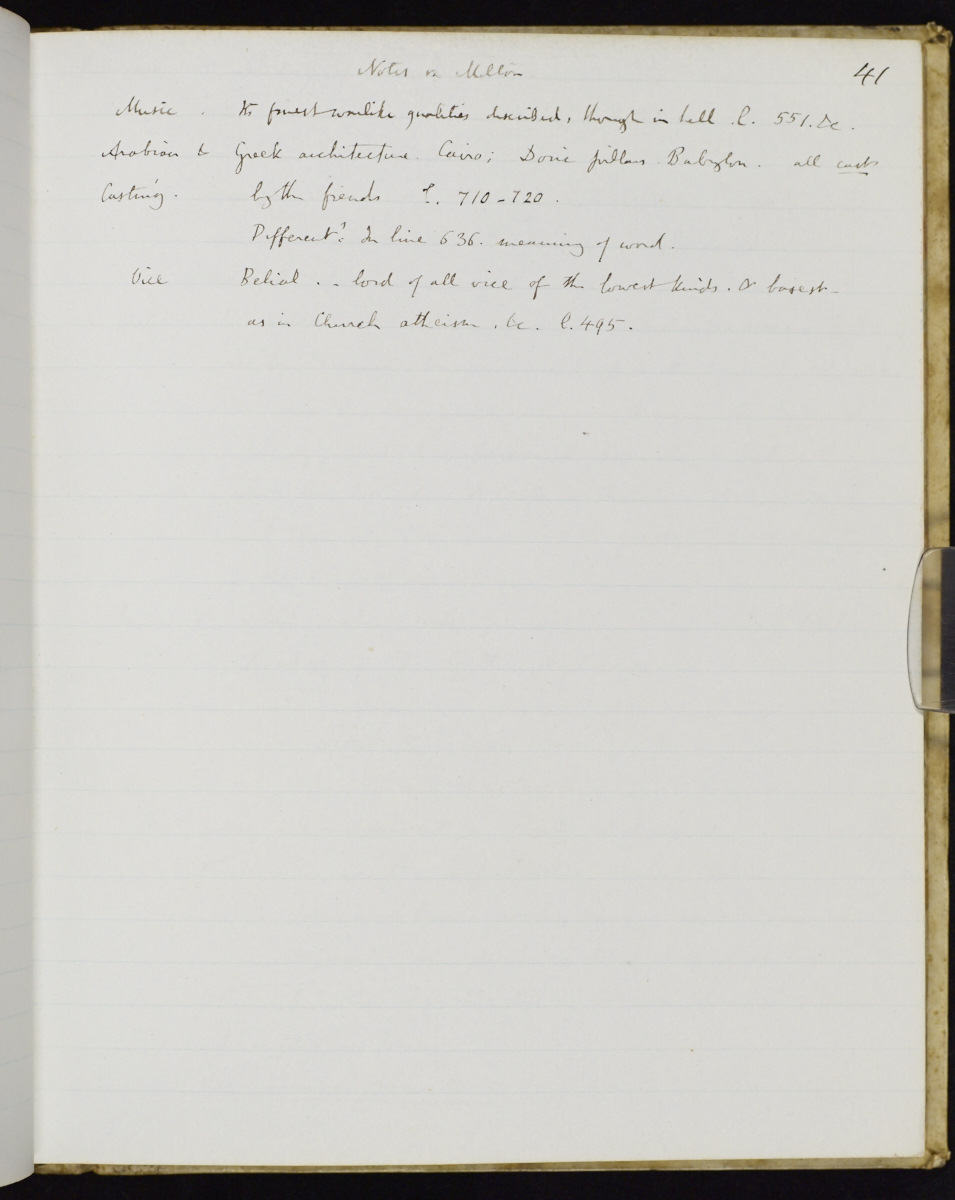 Notes on Milton
41
Music. Its finest warlike qualities described, though in hell. l. 551. &c.
Arabian & Greek architecture. Cairo; Doric pillars. Babylon. all cast
Casting. by the fiends l. 710-720.
Different: In line 636. meaning of word.
Vice Belial. - lord of all vice of the lowest kinds. & basest-
as in Church atheism. &c. l. 495.